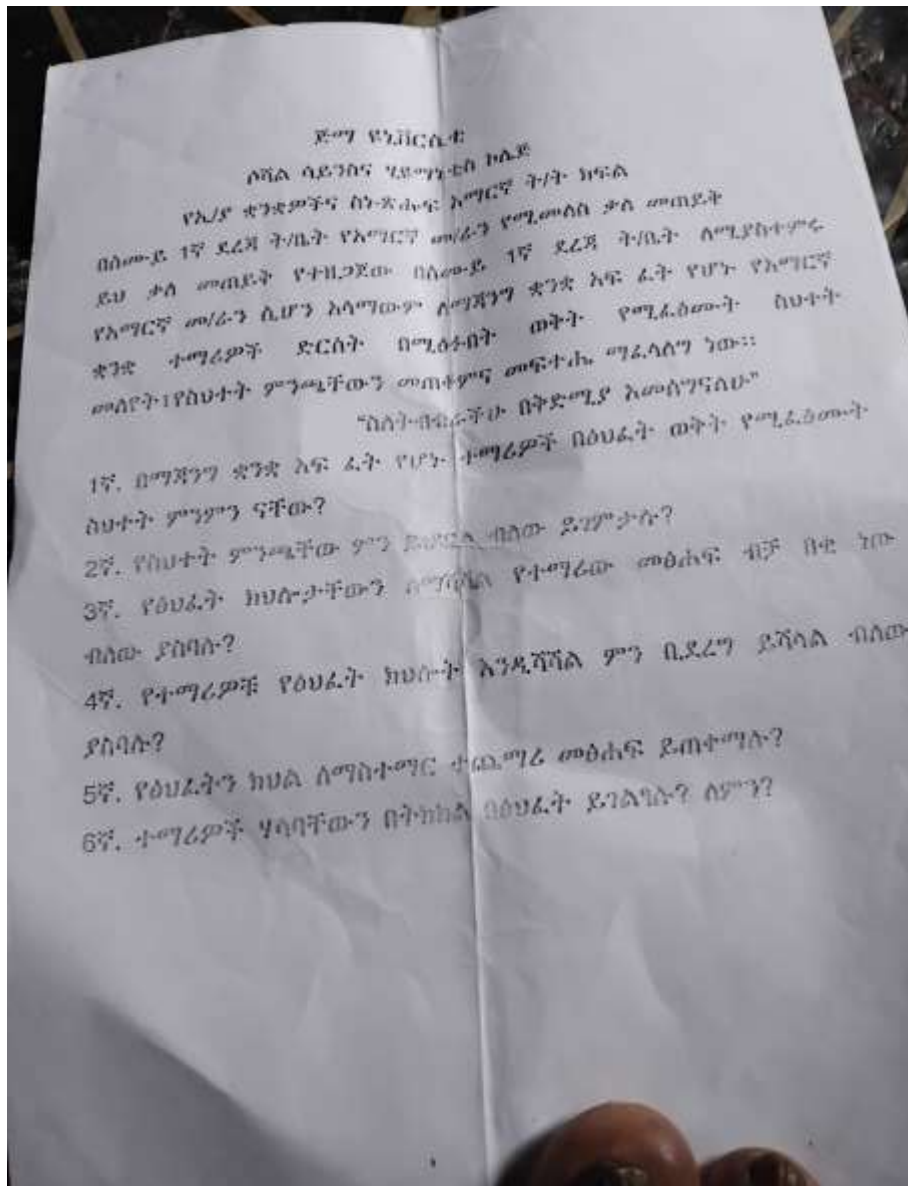 ጅማ ዩኒቨርሲቲ
ሶሻል ሳይንስና ሂዩማኒቲስ ኮሌጅ
የኢ/ያ ቋንቋዎችና ስነ-ጽሑፍ አማርኛ ት/ት ክፍል
በሰሙይ 1ኛ ደረጃ ት/ቤት የአማርኛ መ/ራን የሚመለስ ቃለ መጠይቅ
ይህ ቃለ መጠይቅ የተዘጋጀው በሰሙይ 1ኛ ደረጃ ት/ቤት ለሚያስተምሩ
የአማርኛ መ/ራን ሲሆን አላማውም ለማጃንግ ቋንቋ አፍ ፈት የሆኑ የአማርኛ
ቋንቋ ተማሪዎች ድርሰት በሚፅፉበት ወቅት የሚፈፅሙት ስህተት
መለየት፤የስህተት ምንጫቸውን መጠቆምና መፍተሔ ማፈላለግ ነው፡፡
"ስለትብብራችሁ በቅድሚያ አመሰግናለሁ"
1ኛ. በማጃንግ ቋንቋ አፍ ፈት የሆኑ ተማሪዎች በፅህፈት ወቅት የሚፈፅሙት
ስህተት ምንምን ናቸው?
2ኛ. የስህተት ምንጫቸው ምን ይሆናል ብለው ይገምታሉ?
3ኛ. የፅህፈት ክህሎታቸውን ለማሻሻል የተማሪው መፅሐፍ ብቻ በቂ ነው
ብለው ያስባሉ?
4ኛ. የተማሪዎቹ የፅህፈት ክህሎት እንዲሻሻል ምን ቢደረግ ይሻላል ብለው
ያስባሉ?
5ኛ. የፅህፈትን ክህል ለማስተማር ተጨማሪ መፅሐፍ ይጠቀማሉ?
6ኛ. ተማሪዎች ሃሳባቸውን በትክክል በፅህፈት ይገልፃሉ? ለምን?